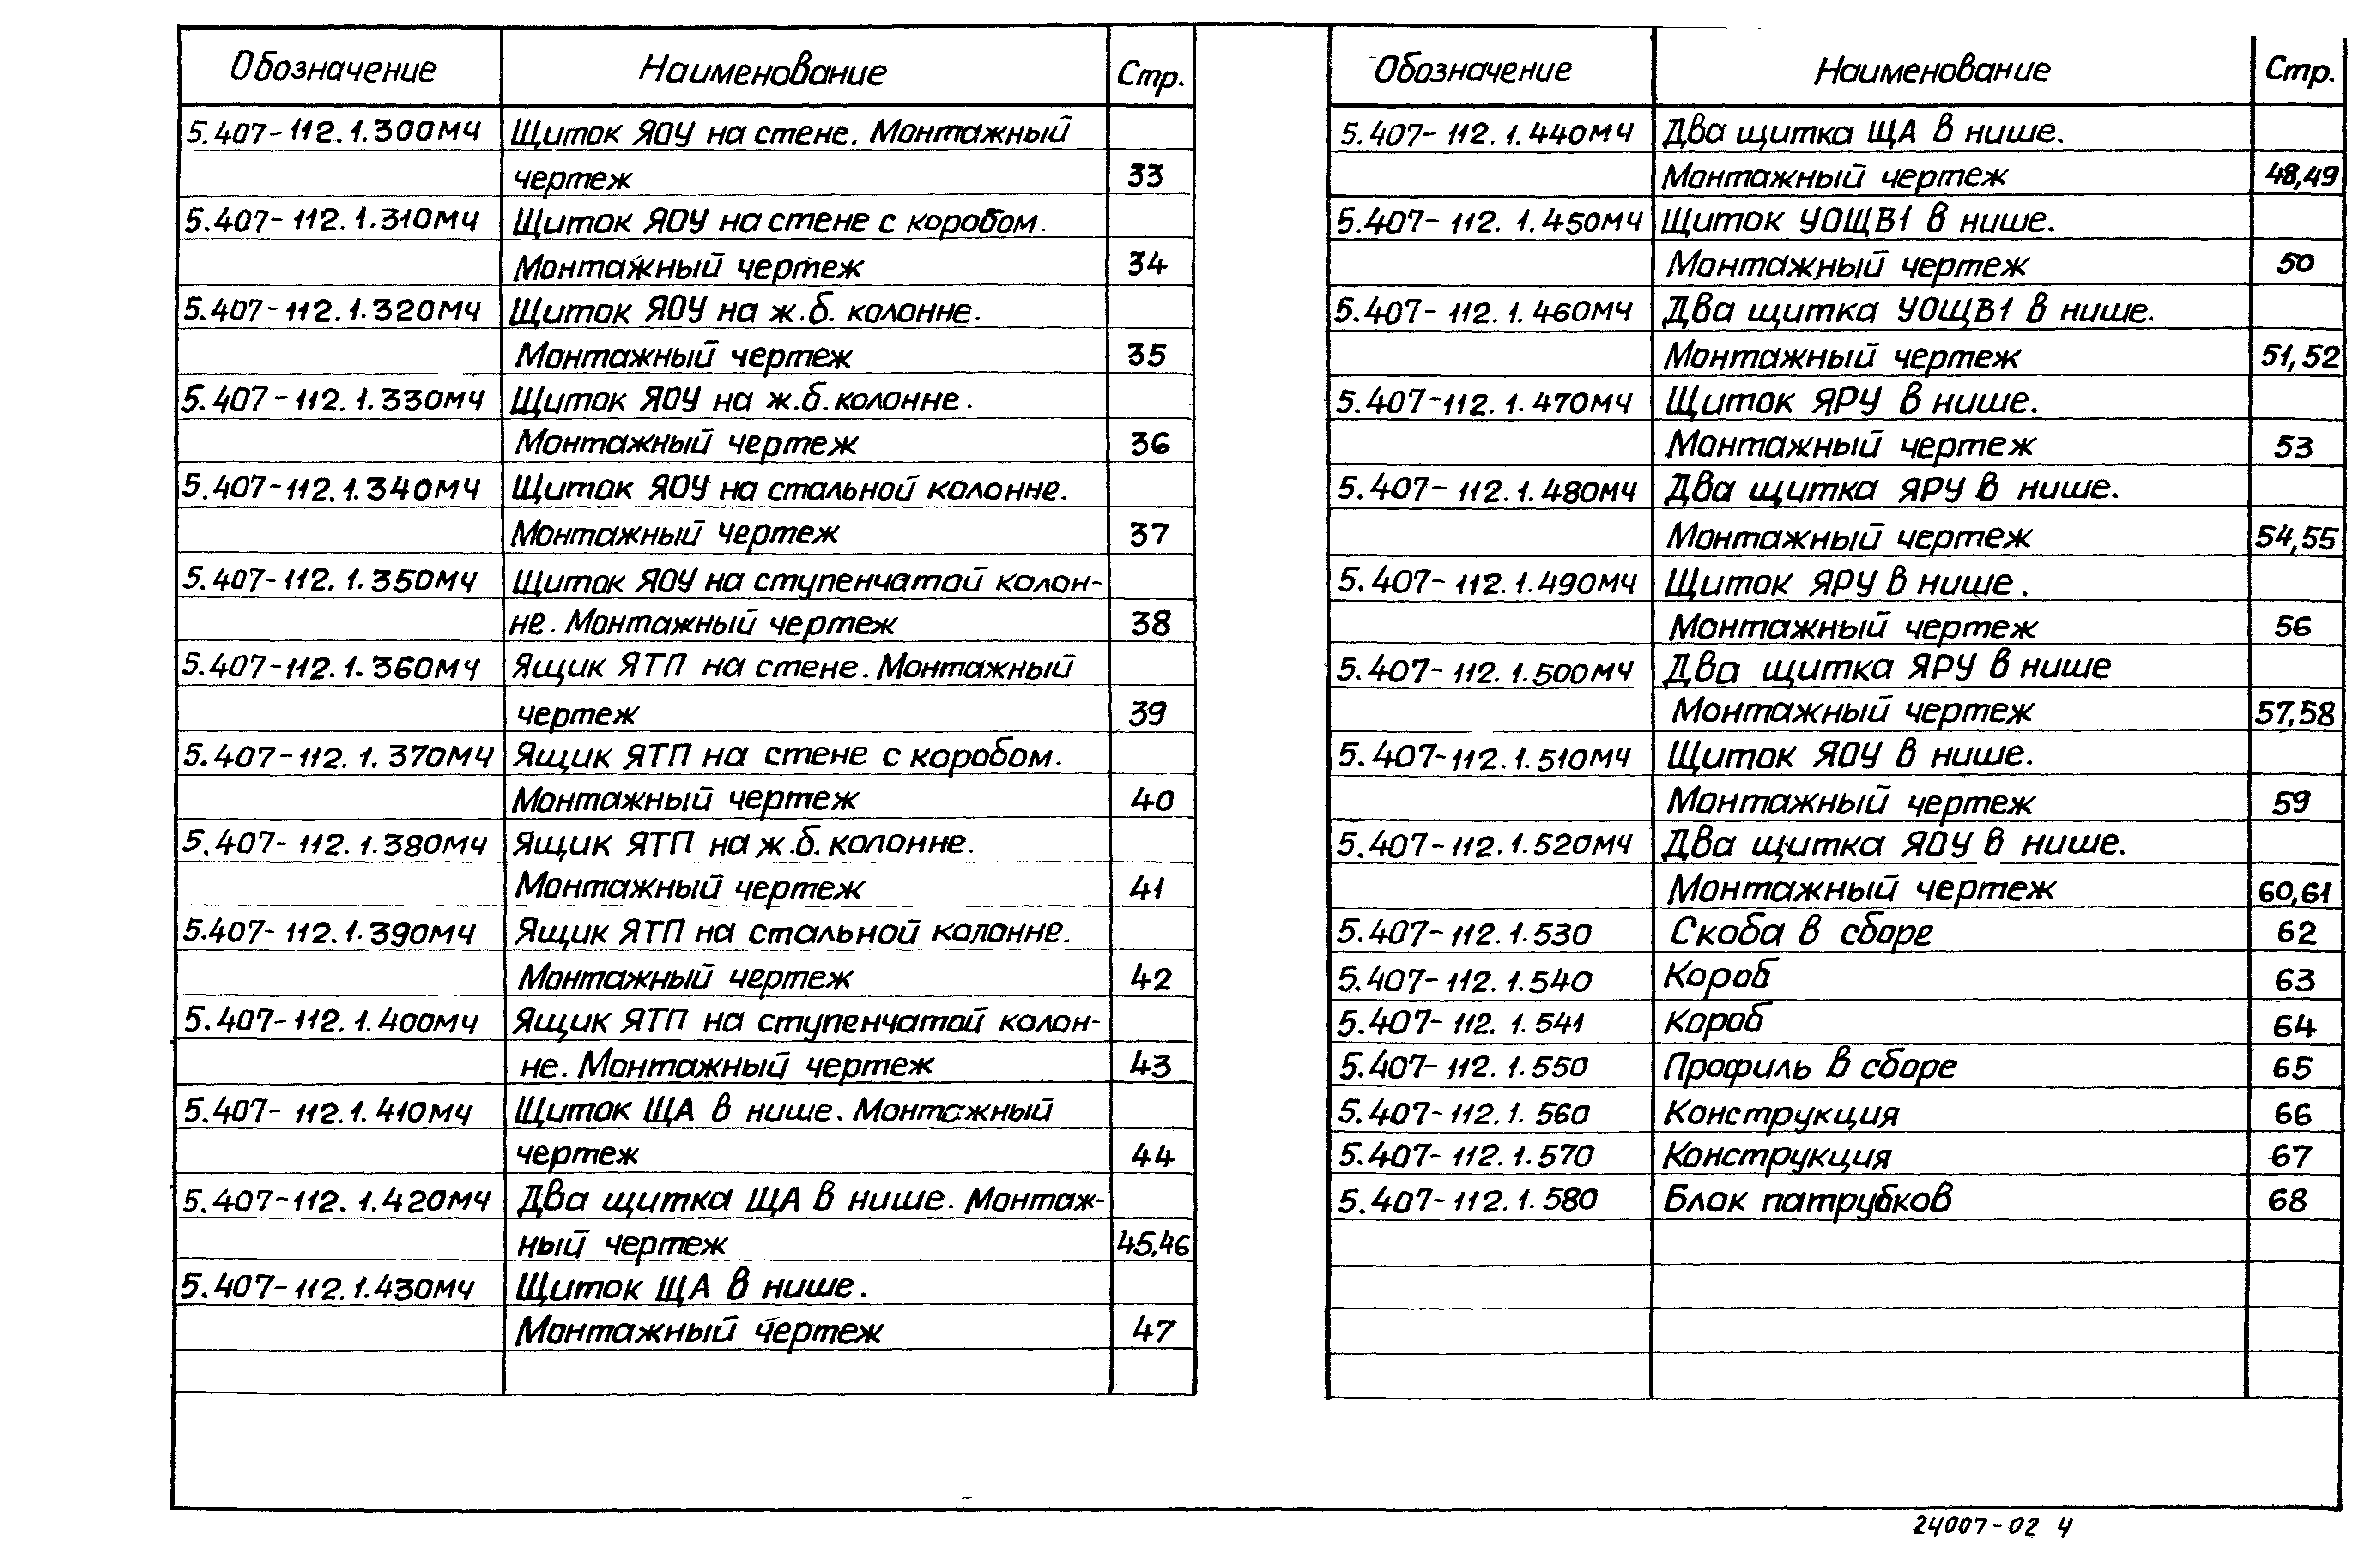 Обозначение Наименование Стр.
5.407-112.1.300МЧ Щиток ЯОУ на стене. Монтажный
чертеж 33
5.407-112.1.310МЧ Щиток ЯОУ на стене с коробом.
Монтажный чертеж 34
5.407-112.1.320МЧ Щиток ЯОУ на ж.б. колонне.
Монтажный чертеж 35
5.407-112.1.330МЧ Щиток ЯОУ на ж.б. колонне.
Монтажный чертеж 36
5.407-112.1.340МЧ Щиток ЯОУ на стальной колонне.
Монтажный чертеж 37
5.407-112.1.350МЧ Щиток ЯОУ на ступенчатой колон-
не. Монтажный чертеж 38
5.407-112.1.360МЧ Ящик ЯТП на стене. Монтажный
чертеж 39
5.407-112.1.370МЧ Ящик ЯТП на стене с коробом.
Монтажный чертеж 40
5.407-112.1.380МЧ Ящик ЯТП на ж.б. колонне.
Монтажный чертеж 41
5.407-112.1.390МЧ Ящик ЯТП на стальной колонне.
Монтажный чертеж 42
5.407-112.1.400МЧ Ящик ЯТП на ступенчатой колон-
не. Монтажный чертеж 43
5.407-112.1.410МЧ Щиток ЩА в нише. Монтажный
чертеж 44
5.407-112.1.420МЧ Два щитка ЩА в нише. Монтаж-
ный чертеж 45,46
5.407-112.1.430МЧ Щиток ЩА в нише.
Монтажный чертеж 47
Обозначение Наименование Стр.
5.407-112.1.440МЧ Два щитка ЩА в нише.
Монтажный чертеж 48,49
5.407-112.1.450МЧ Щиток УОЩВ1 в нише.
Монтажный чертеж 50
5.407-112.1.460МЧ Два щитка УОЩВ1 в нише.
Монтажный чертеж 51,52
5.407-112.1.470МЧ Щиток ЯРУ в нише.
Монтажный чертеж 53
5.407-112.1.480МЧ Два щитка ЯРУ в нише.
Монтажный чертеж 54,55
5.407-112.1.490МЧ Щиток ЯРУ в нише.
Монтажный чертеж 56
5.407-112.1.500МЧ Два щитка ЯРУ в нише
Монтажный чертеж 57,58
5.407-112.1.510МЧ Щиток ЯОУ в нише.
Монтажный чертеж 59
5.407-112.1.520МЧ Два щитка ЯОУ в нише.
Монтажный чертеж 60,61
5.407-112.1.530 Скоба в сборе 62
5.407-112.1.540 Короб 63
5.407-112.1.541 Короб 64
5.407-112.1.550 Профиль в сборе 65
5.407-112.1.560 Конструкция 66
5.407-112.1.570 Конструкция 67
5.407-112.1.580 Блок патрубков 68
24007-02 4